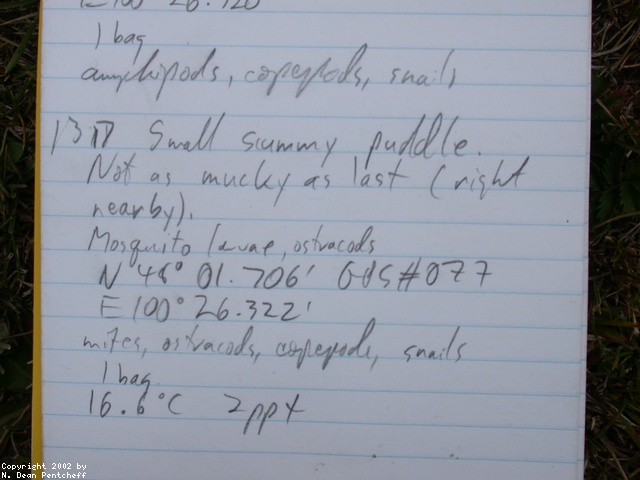 E100° 26.120'
1 bag
amphipods, copepods, snails
13D Small scummy puddle.
Not as mucky as last (right
nearby).
Mosquito larvae, ostracods
N 48° 01.706' GPS#077
E100° 26.322'
mites, ostracods, copepods, snails
1 bag
16.6°C 2ppt
Copyright 2002 by
N. Dean Pentcheff